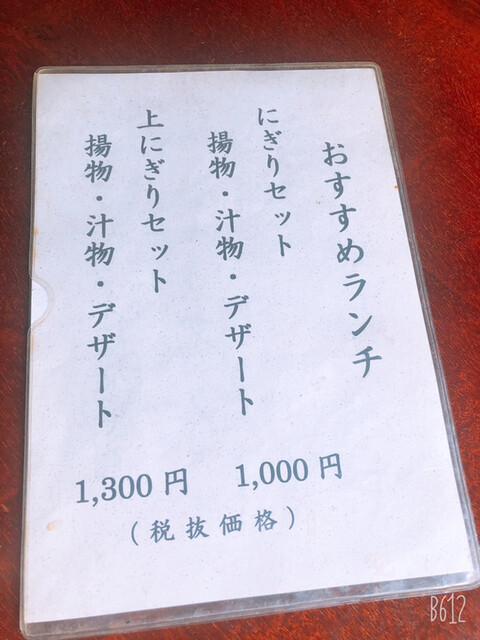 おすすめランチ
にぎりセット
揚物・汁物・デザート
1,000 円
上にぎりセット
揚物・汁物・デザート
1,300 円
(税抜価格)
B612